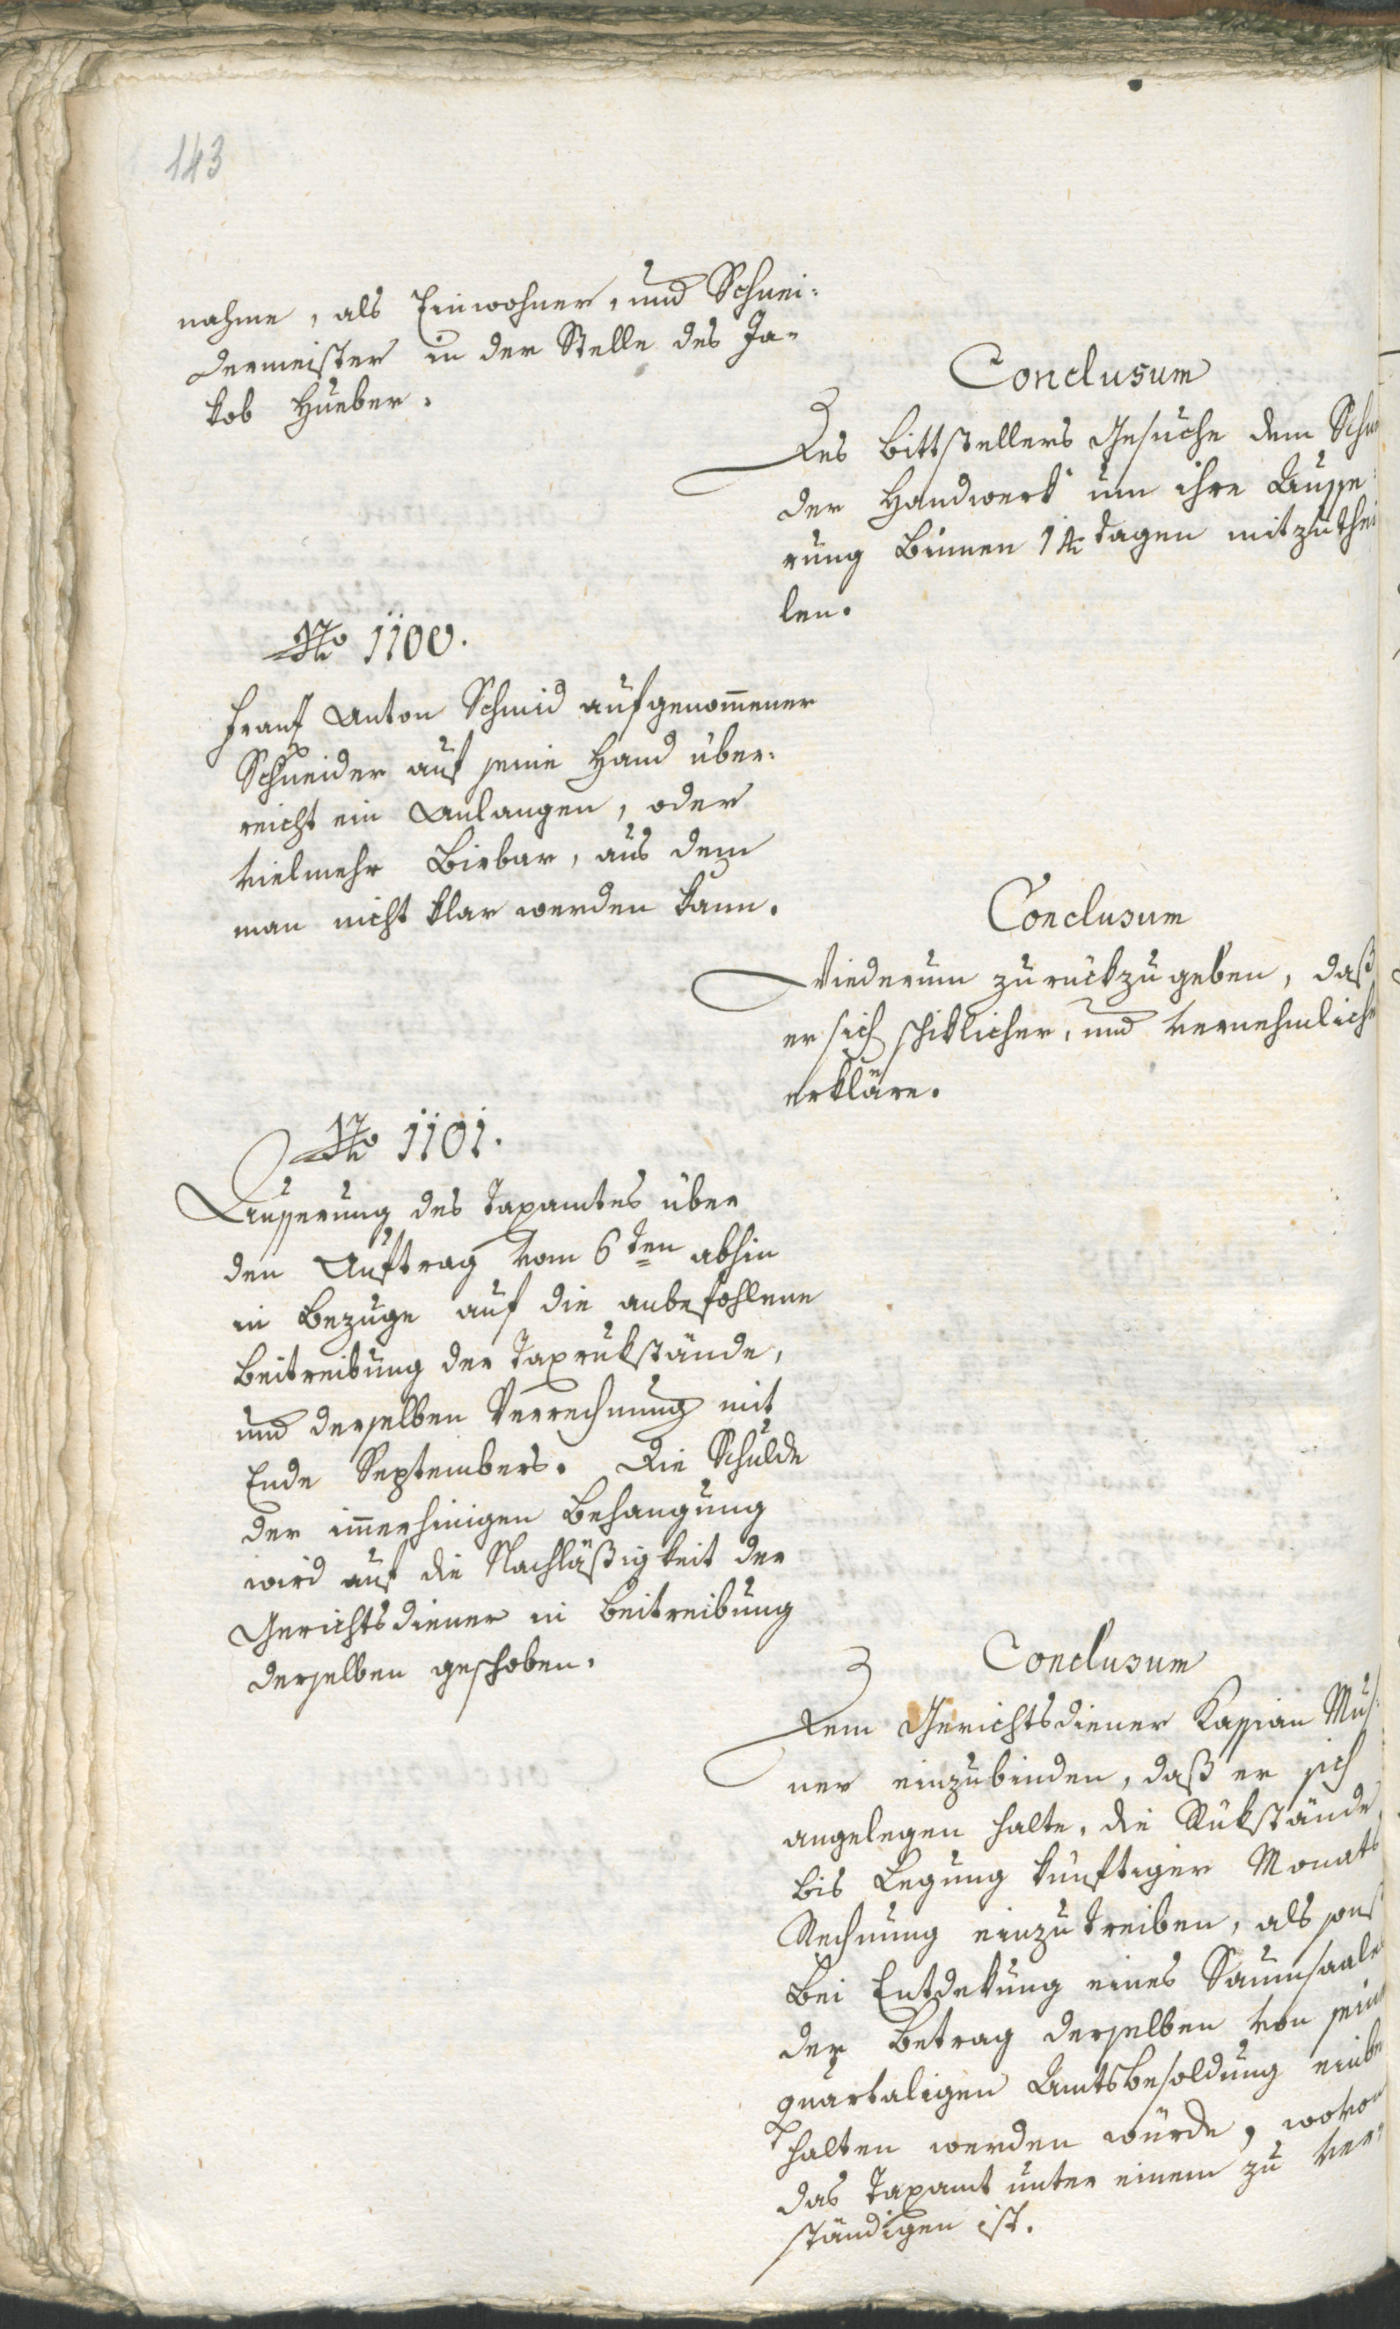 143
nahme, als Einwohner, und Schnei-
dermeister in der Stelle des Ja-
kob Hueber.
Conclusum
Des Bittstellers Gesuche dem
der Handwerk um ihre Äusse-
rung binnen 14 tagen mitzuthei
len.
No 1100.
Franz Anton Schmid aufgenommener
Schneider auf seine Hand über-
reicht ein Anlangen, oder
vielmehr, aus dem
man nicht klar werden kann.
Conclusum
Wiederum zurückzugeben, daß
er sich schiklicher, und vernehmlicher
erkläre.
No 1101.
Äusserung des Taxamtes über
den Auftrag vom 6ten abhin
in Bezuge auf die anbefohlene
Beitreibung der Taxrükstände,
und derselben Verrechnung mit
Ende Septembers. Die Schulde
der immerhinigen Behangung
wird auf die Nachläßigkeit der
Gerichtsdiener in Beitreibung
derselben geschoben.
Conclusum
Dem Gerichtsdiener Kassian
ner einzubinden, daß er sich
angelegen halte, die Rükstände
bis Legung künftiger Monats
Rechnung einzutreiben, als sonst
bei Entdekung eines Saumsaales
der Betrag derselben von seiner
quartaligen Amtsbesoldung einbe
halten werden würde, wovon
das Taxamt unter einem zu ver-
ständigen ist.